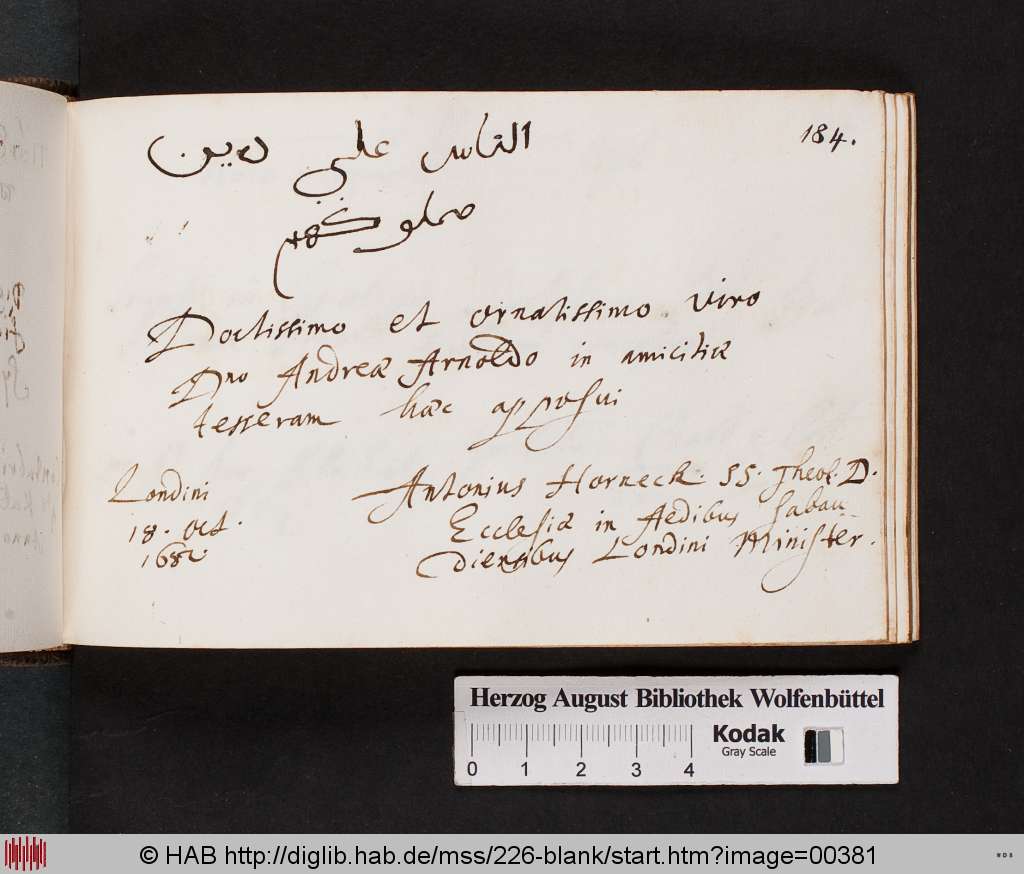 184.
الناس على دين
ملوكهم
Doctissimo et ornatissimo viro
Dno Andreæ Arnoldo in amicitiæ
tesseram hæc apposui
Londini
18. Oct.
1682
Antonius Horneck. SS. Theol. D.
Ecclesiæ in Aedibus Sabau-
diensibus Londini Minister.
Herzog August Bibliothek Wolfenbüttel
Kodak
Gray Scale
0 1 2 3 4
© HAB http://diglib.hab.de/mss/226-blank/start.htm?image=00381